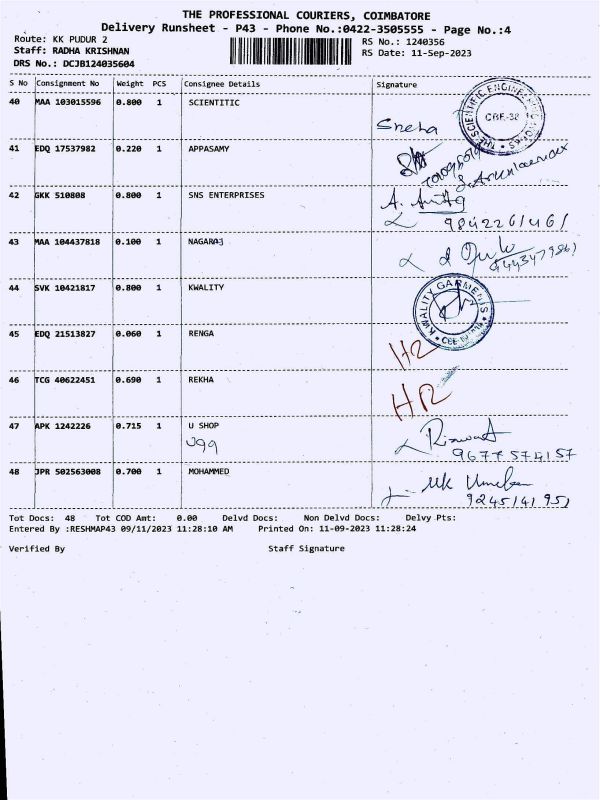 THE PROFESSIONAL COURIERS, COIMBATORE
Delivery Runsheet - P43 - Phone No.:0422-3505555 - Page No.:4
Route: KK PUDUR 2
RS No.: 1240356
Staff: RADHA KRISHNAN
RS Date: 11-Sep-2023
DRS No.: DCJB124035604
S No Consignment No Weight PCS Consignee Details Signature
40 MAA 103015596 0.800 1 SCIENTITIC
Sneha
CBE-38
41 EDQ 17537982 0.220 1 APPASAMY
42 GKK 510808 0.800 1 SNS ENTERPRISES
9842261461
43 MAA 104437818 0.100 1 NAGARAJ
44 SVK 10421817 0.800 1 KWALITY
KWALITY GARMENTS
45 EDQ 21513827 0.060 1 RENGA
46 TCG 40622451 0.690 1 REKHA
47 APK 1242226 0.715 1 U SHOP
9677574157
48 JPR 502563008 0.700 1 MOHAMMED
Tot Docs: 48 Tot COD Amt: 0.00 Delvd Docs: Non Delvd Docs: Delvy Pts:
Entered By :RESHMAP43 09/11/2023 11:28:10 AM Printed On: 11-09-2023 11:28:24
Verified By Staff Signature